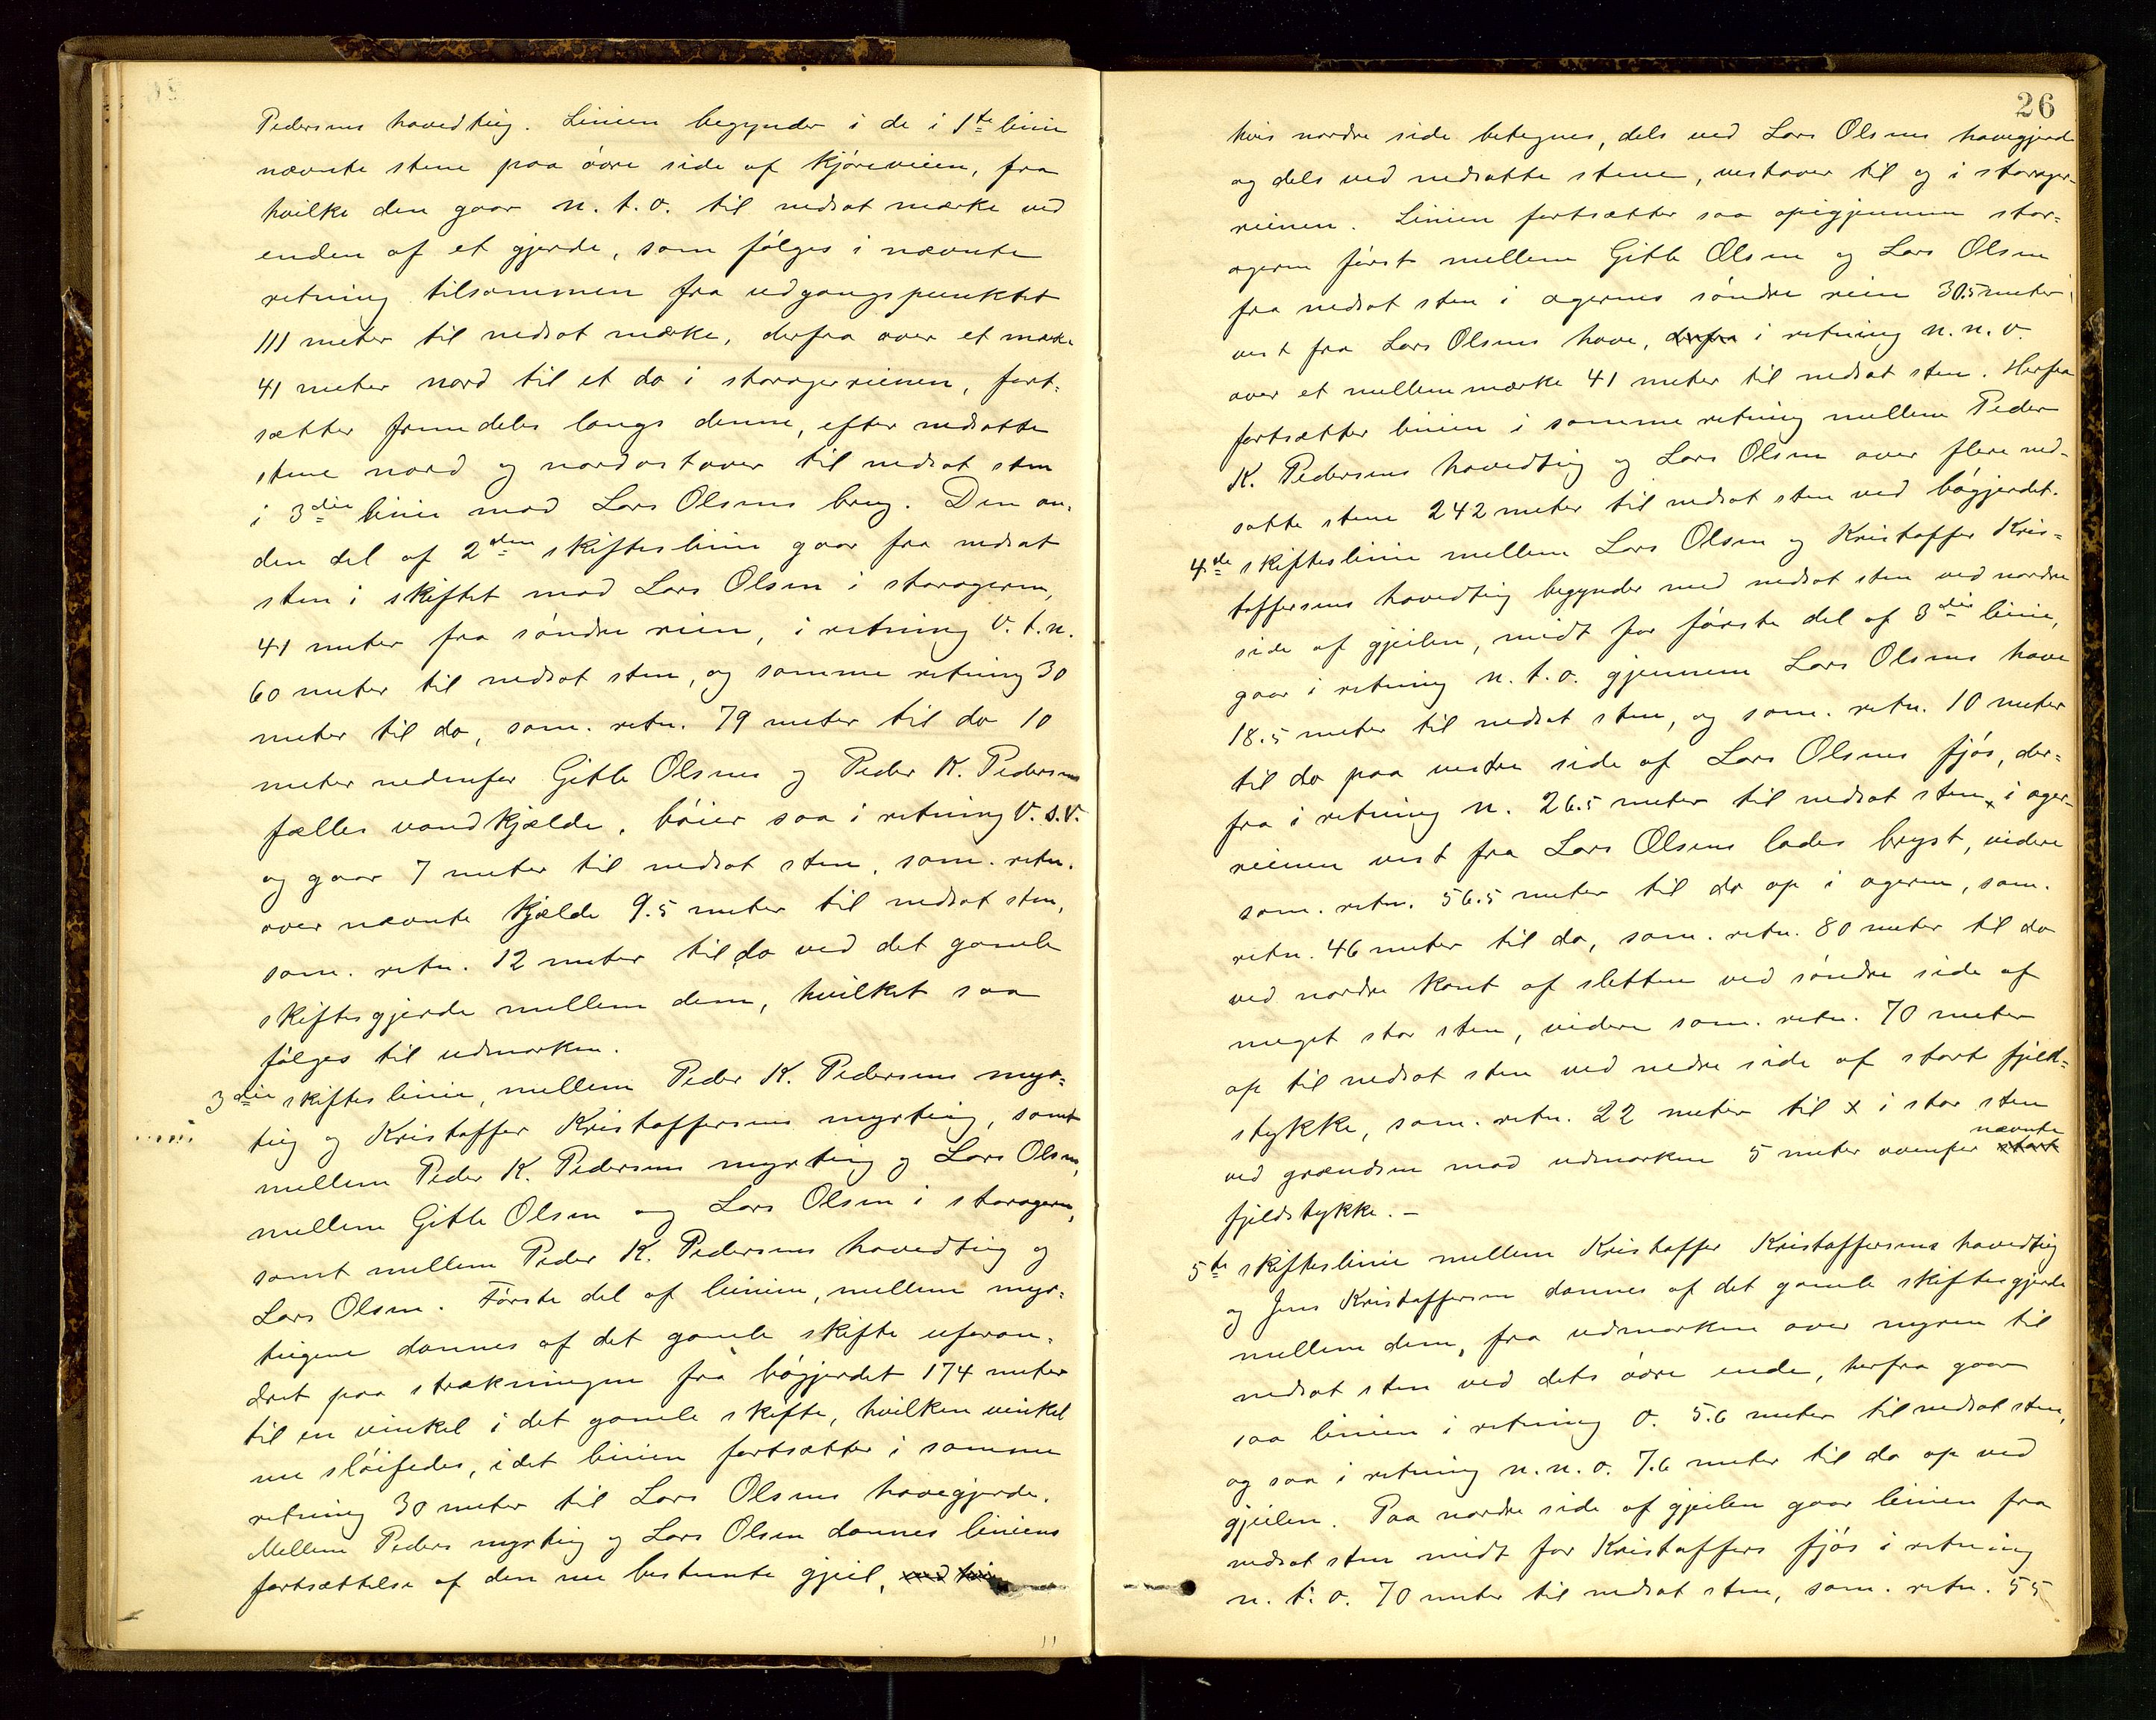 Pedersens hovedteig. Linien begynder i de i 1ste linie
nævnte stene paa övre side af kjöreveien, fra
hvilke den gaar n. t. o. til nedsat mærke ved
enden af et gjerde, som fölges i nævnte
retning tilsammen fra udgangspunktet
111 meter til nedsat mærke, derfra over et mærke
41 meter nord til et do i storagerreinen, fort-
sætter fremdeles langs denne, efter nedsatte
stene nord og nordostover til nedsat sten
i 3die linie mod Lars Olsens brug. Den an-
den del af 2den skifteslinie gaar fra nedsat
sten i skiftet mod Lars Olsen i storageren,
41 meter fra söndre rein, i retning v. t. n.
60 meter til nedsat sten, og samme retning 30
meter til do, sam. retn. 79 meter til do 10
meter nedenfor Gitle Olsens og Peder K. Pedersens
fælles vandkjælde, böier saa i retning V. s. V.
og gaar 7 meter til nedsat sten, sam. retn.
over nævnte kjælde 9.5 meter til nedsat sten,
sam. retn. 12 meter til do ved det gamle
skiftesgjerde mellem dem, hvilket saa
fölges til udmarken.
3die skifteslinie, mellem Peder K. Pedersens myr-
teig og Kristoffer Kristoffersens myrteig, samt
mellem Peder K. Pedersens myrteig og Lars Olsen,
mellem Gitle Olsen og Lars Olsen i storageren,
samt mellem Peder K. Pedersens hovedteig og
Lars Olsen. Förste del af linien, mellem myr-
teigene dannes af det gamle skifte uforan-
dret paa strækningen fra bögjerdet 174 meter
til en vinkel i det gamle skifte, hvilken vinkel
nu slöifedes, idet linien fortsætter i samme
retning 30 meter til Lars Olsens havegjerde.
Mellem Peders myrteig og Lars Olsen dannes liniens
fortsættelse af den nu bestemte gjeil,
26
hvis nordre side betegnes, dels ved Lars Olsens havegjerde
og dels ved nedsatte stene, vestover til og i storager-
reinen. Linien fortsætter saa opigjennem stor-
ageren först mellem Gitle Olsen og Lars Olsen
fra nedsat sten i agerens söndre rein 30.5 meter
vest fra Lars Olsens have, derfra i retning n. n. v.
over et mellemmærke 41 meter til nedsat sten. Herfra
fortsætter linien i samme retning mellem Peder
K. Pedersens hovedteig og Lars Olsen over flere ned-
satte stene 242 meter til nedsat sten ved bögjerdet.
4de skifteslinie mellem Lars Olsen og Kristoffer Kris-
toffersens hovedteig begynder med nedsat sten ved nordre
side af gjeilen, midt for förste del af 3die linie,
gaar i retning n. t. o. gjennem Lars Olsens have
18.5 meter til nedsat sten, og sam. retn. 10 meter
til do paa vestre side af Lars Olsens fjös, der-
fra i retning n. 26.5 meter til nedsat sten x i ager-
reinen vest fra Lars Olsens lades bryst, videre
sam. retn. 56.5 meter til do op i ageren, sam.
retn. 46 meter til do, sam. retn. 80 meter til do
ved nordre kant af sletten ved söndre side af
meget stor sten, videre sam. retn. 70 meter
op til nedsat sten ved nedre side af stort fjeld-
stykke, sam. retn. 22 meter til x i stor sten
ved grændsen mod udmarken 5 meter ovenfor stort nævnte
fjeldstykke. –
5te skifteslinie mellem Kristoffer Kristoffersens hovedteig
og Jens Kristoffersen dannes af det gamle skiftesgjerde
mellem dem, fra udmarken over myren til
nedsat sten ved dets övre ende, herfra gaar
saa linien i retning o. 5.6 meter til nedsat sten,
og saa i retning n. n. o. 7.6 meter til do op ved
gjeilen. Paa nordre side af gjeilen gaar linien fra
nedsat sten midt for Kristoffers fjös i retning
n. t. o. 70 meter til nedsat sten, sam. retn. 55